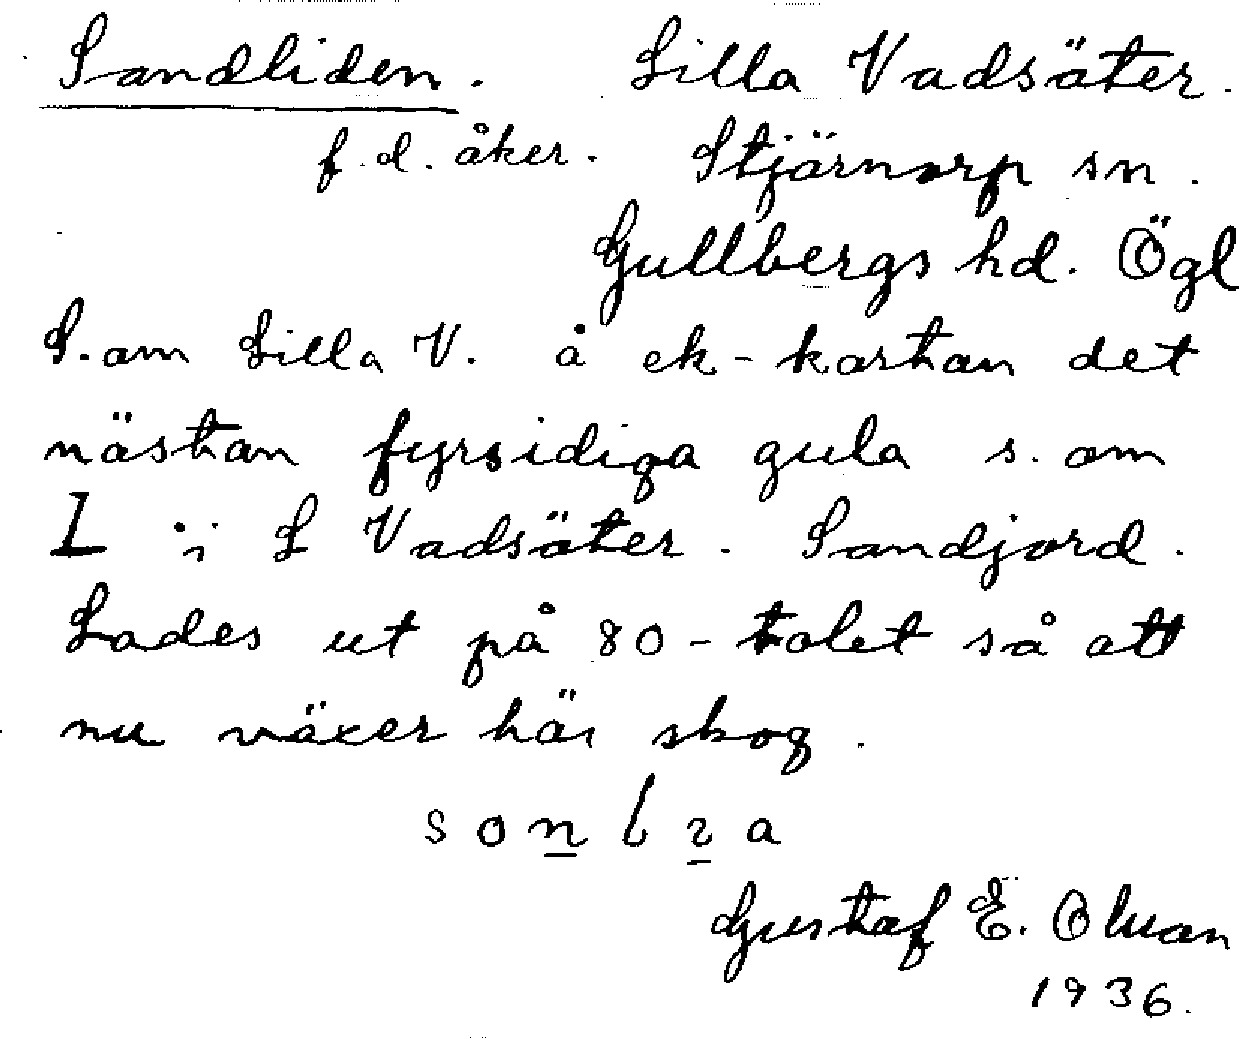 Sandliden. Lilla Vadsäter.
f.d. åker. Stjärnorp sn.
Gullbergs hd. Ögl
S. om Lilla V. å ek-kartan det
nästan fyrsidiga gula s. om
L i L Vadsäter. Sandjord.
Lades ut på 80-talet så att
nu växer här skog.
Gustaf E.
1936.